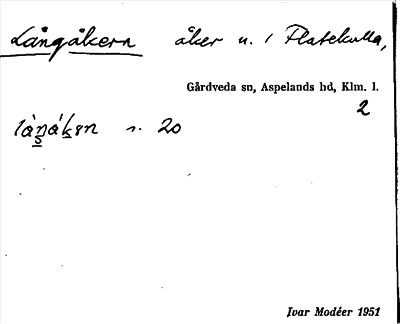 Långåkern åker n. 1 Platekulla,
Gårdveda sn, Aspelands hd, Klm. l.
2
s. 20
Ivar Modéer 1951